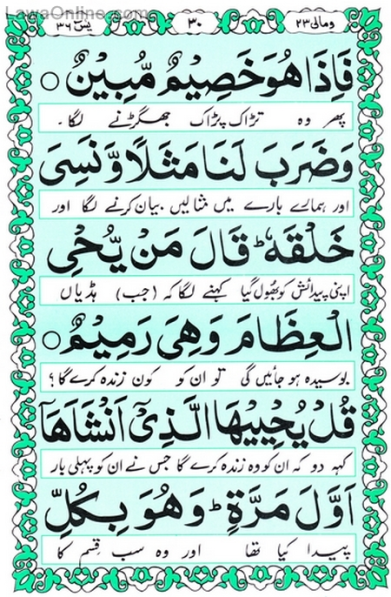 LawaOnline.com
ومالی ۲۳
۳۰
یٰسٓ ۳۶
فَاِذَا هُوَ خَصِیْمٌ مُّبِیْنٌ ○
پھر وہ تڑاک پڑاک جھگڑنے لگا۔
وَضَرَبَ لَنَا مَثَلًا وَّنَسِیَ
اور ہمارے بارے میں مثالیں بیان کرنے لگا اور
خَلْقَهٗ ؕ قَالَ مَنْ یُّحْیِ
اپنی پیدائش کو بھول گیا کہنے لگا کہ (جب) ہڈیاں
الْعِظَامَ وَهِیَ رَمِیْمٌ ○
بوسیدہ ہو جائیں گی تو ان کو کون زندہ کرے گا؟
قُلْ یُحْیِیْهَا الَّذِیْۤ اَنْشَاَهَاۤ
کہہ دو کہ ان کو وہ زندہ کرے گا جس نے ان کو پہلی بار
اَوَّلَ مَرَّةٍ ؕ وَهُوَ بِكُلِّ
پیدا کیا تھا اور وہ سب قسم کا